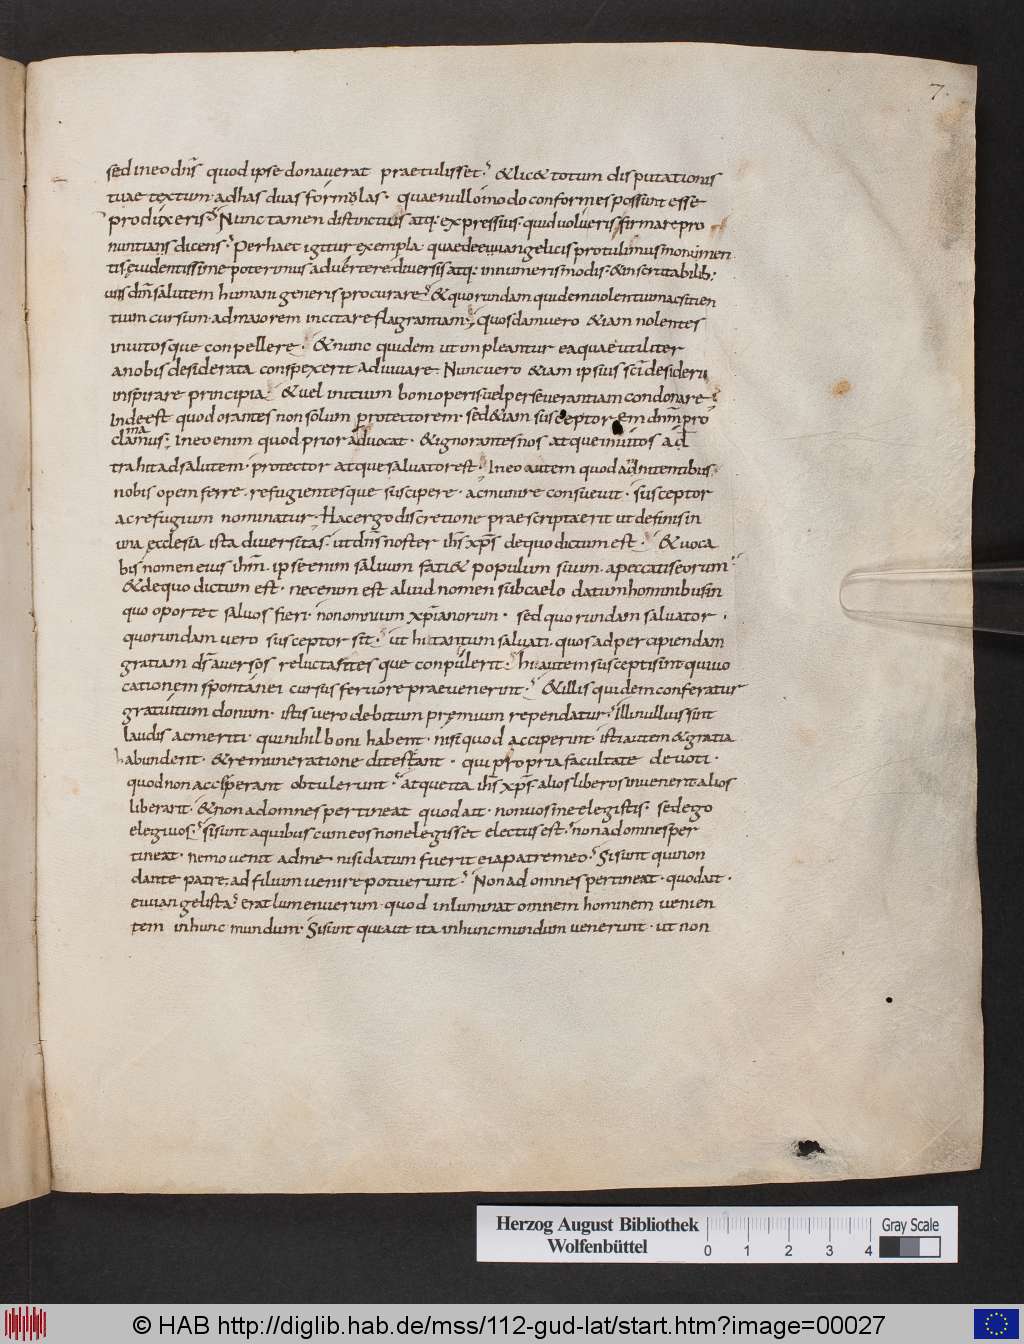 7.
sed in eo dn̄s quod ipse donauerat praetulisset. &lic& totum disputationis
tuae textum adhas duas formolas. quae nullo modo conformes possunt esse
produxeris. Nunc tamen distinctius atq: expressius quid uolueris firmare pro
nuntians dicens. Per haec igitur exempla quae de euuangelicis protulimus monimen
tis euidentissime poterimus aduertere diuersis atq: innumeris modis &inscrutabilib;
uiis dm̄ salutem humani generis procurare. &quorundam quidem uolentium ac sitien
tium cursum ad maiorem incitare flagrantiam. quosdam uero &iam nolentes
inuitosque conpellere. &nunc quidem ut impleantur ea quae utiliter
a nobis desiderata conspexerit adiuuare. Nunc uero &iam ipsius sc̄i desiderii
inspirare principia. &uel initium boni operis uel perseuerantiam condonare.
Inde est quod orantes non solum protectorem sed &iam susceptorem dn̄m pro
clamamus. In eo enim quod prior aduocat. &ignorantes nos atque inuitos ad
trahit ad salutem. protector atque saluator est. In eo autem quod adnitentibus
nobis opem ferre. refugientesque suscipere. ac munire consueuit. susceptor
ac refugium nominatur. Hac ergo discretione praescripta erit ut definis in
una ecclesia ista diuersitas. ut dn̄s noster ih̄s xp̄s de quo dictum est. &uoca
bis nomen eius ih̄m. ipse enim saluum faci& populum suum. a peccatis eorum.
&de quo dictum est. nec enim est aliud nomen sub caelo datum hominibus in
quo oportet saluos fieri. non omnium xp̄ianorum. sed quorundam saluator.
quorundam uero susceptor sit. ut hi tantum saluati. quos ad percipiendam
gratiam dn̄s auersos reluctantesque conpulerit. hi autem suscepti sint qui uo
cationem spontanei cursus feruore praeuenerint. &illis quidem conferatur
gratuitum donum. istis uero debitum premium rependatur. Illi nullius sint
laudis ac meriti. qui nihil boni habent. nisi quod acciperint. isti autem &gratia
habundent. &remuneratione ditescant. qui propria facultate deuoti.
quod non acciperant obtulerunt. atque ita ih̄s xp̄s. alios liberos inuenerit alios
liberarit. &non ad omnes pertineat quod ait. non uos me elegistis. sed ego
elegi uos. si sunt a quibus cum eos non elegisset electus est. non ad omnes per
tineat. nemo uenit ad me nisi datum fuerit ei a patre meo. Si sunt qui non
dante patre. ad filium uenire potuerunt. Non ad omnes pertineat. quod ait.
euuangelista. erat lumen uerum quod inluminat omnem hominem uenien
tem in hunc mundum. Si sunt qui aut ita in hunc mundum uenerunt. ut non
Herzog August Bibliothek
Wolfenbüttel
0 1 2 3 4
Gray Scale
© HAB http://diglib.hab.de/mss/112-gud-lat/start.htm?image=00027